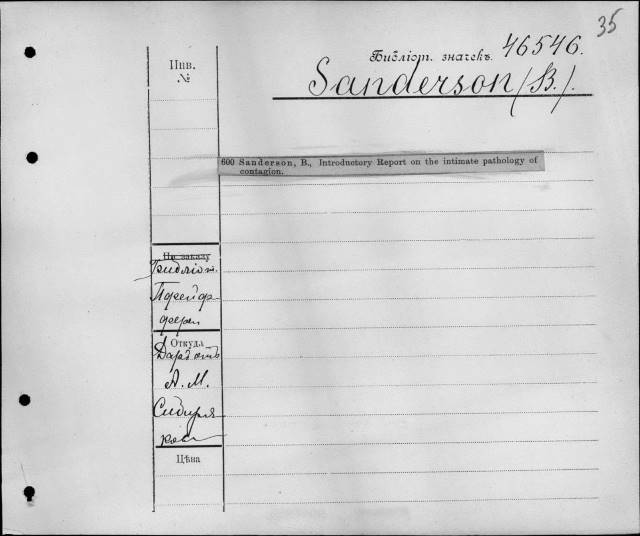 35
Библіот. значекъ 46546.
Sanderson (B.).
Инв.
№
600 Sanderson, B., Introductory Report on the intimate pathology of
contagion.
По заказу
Библіот.
Пфейф
фера
Откуда
Даръ отъ
А. М.
Сибиря
кова
Цѣна